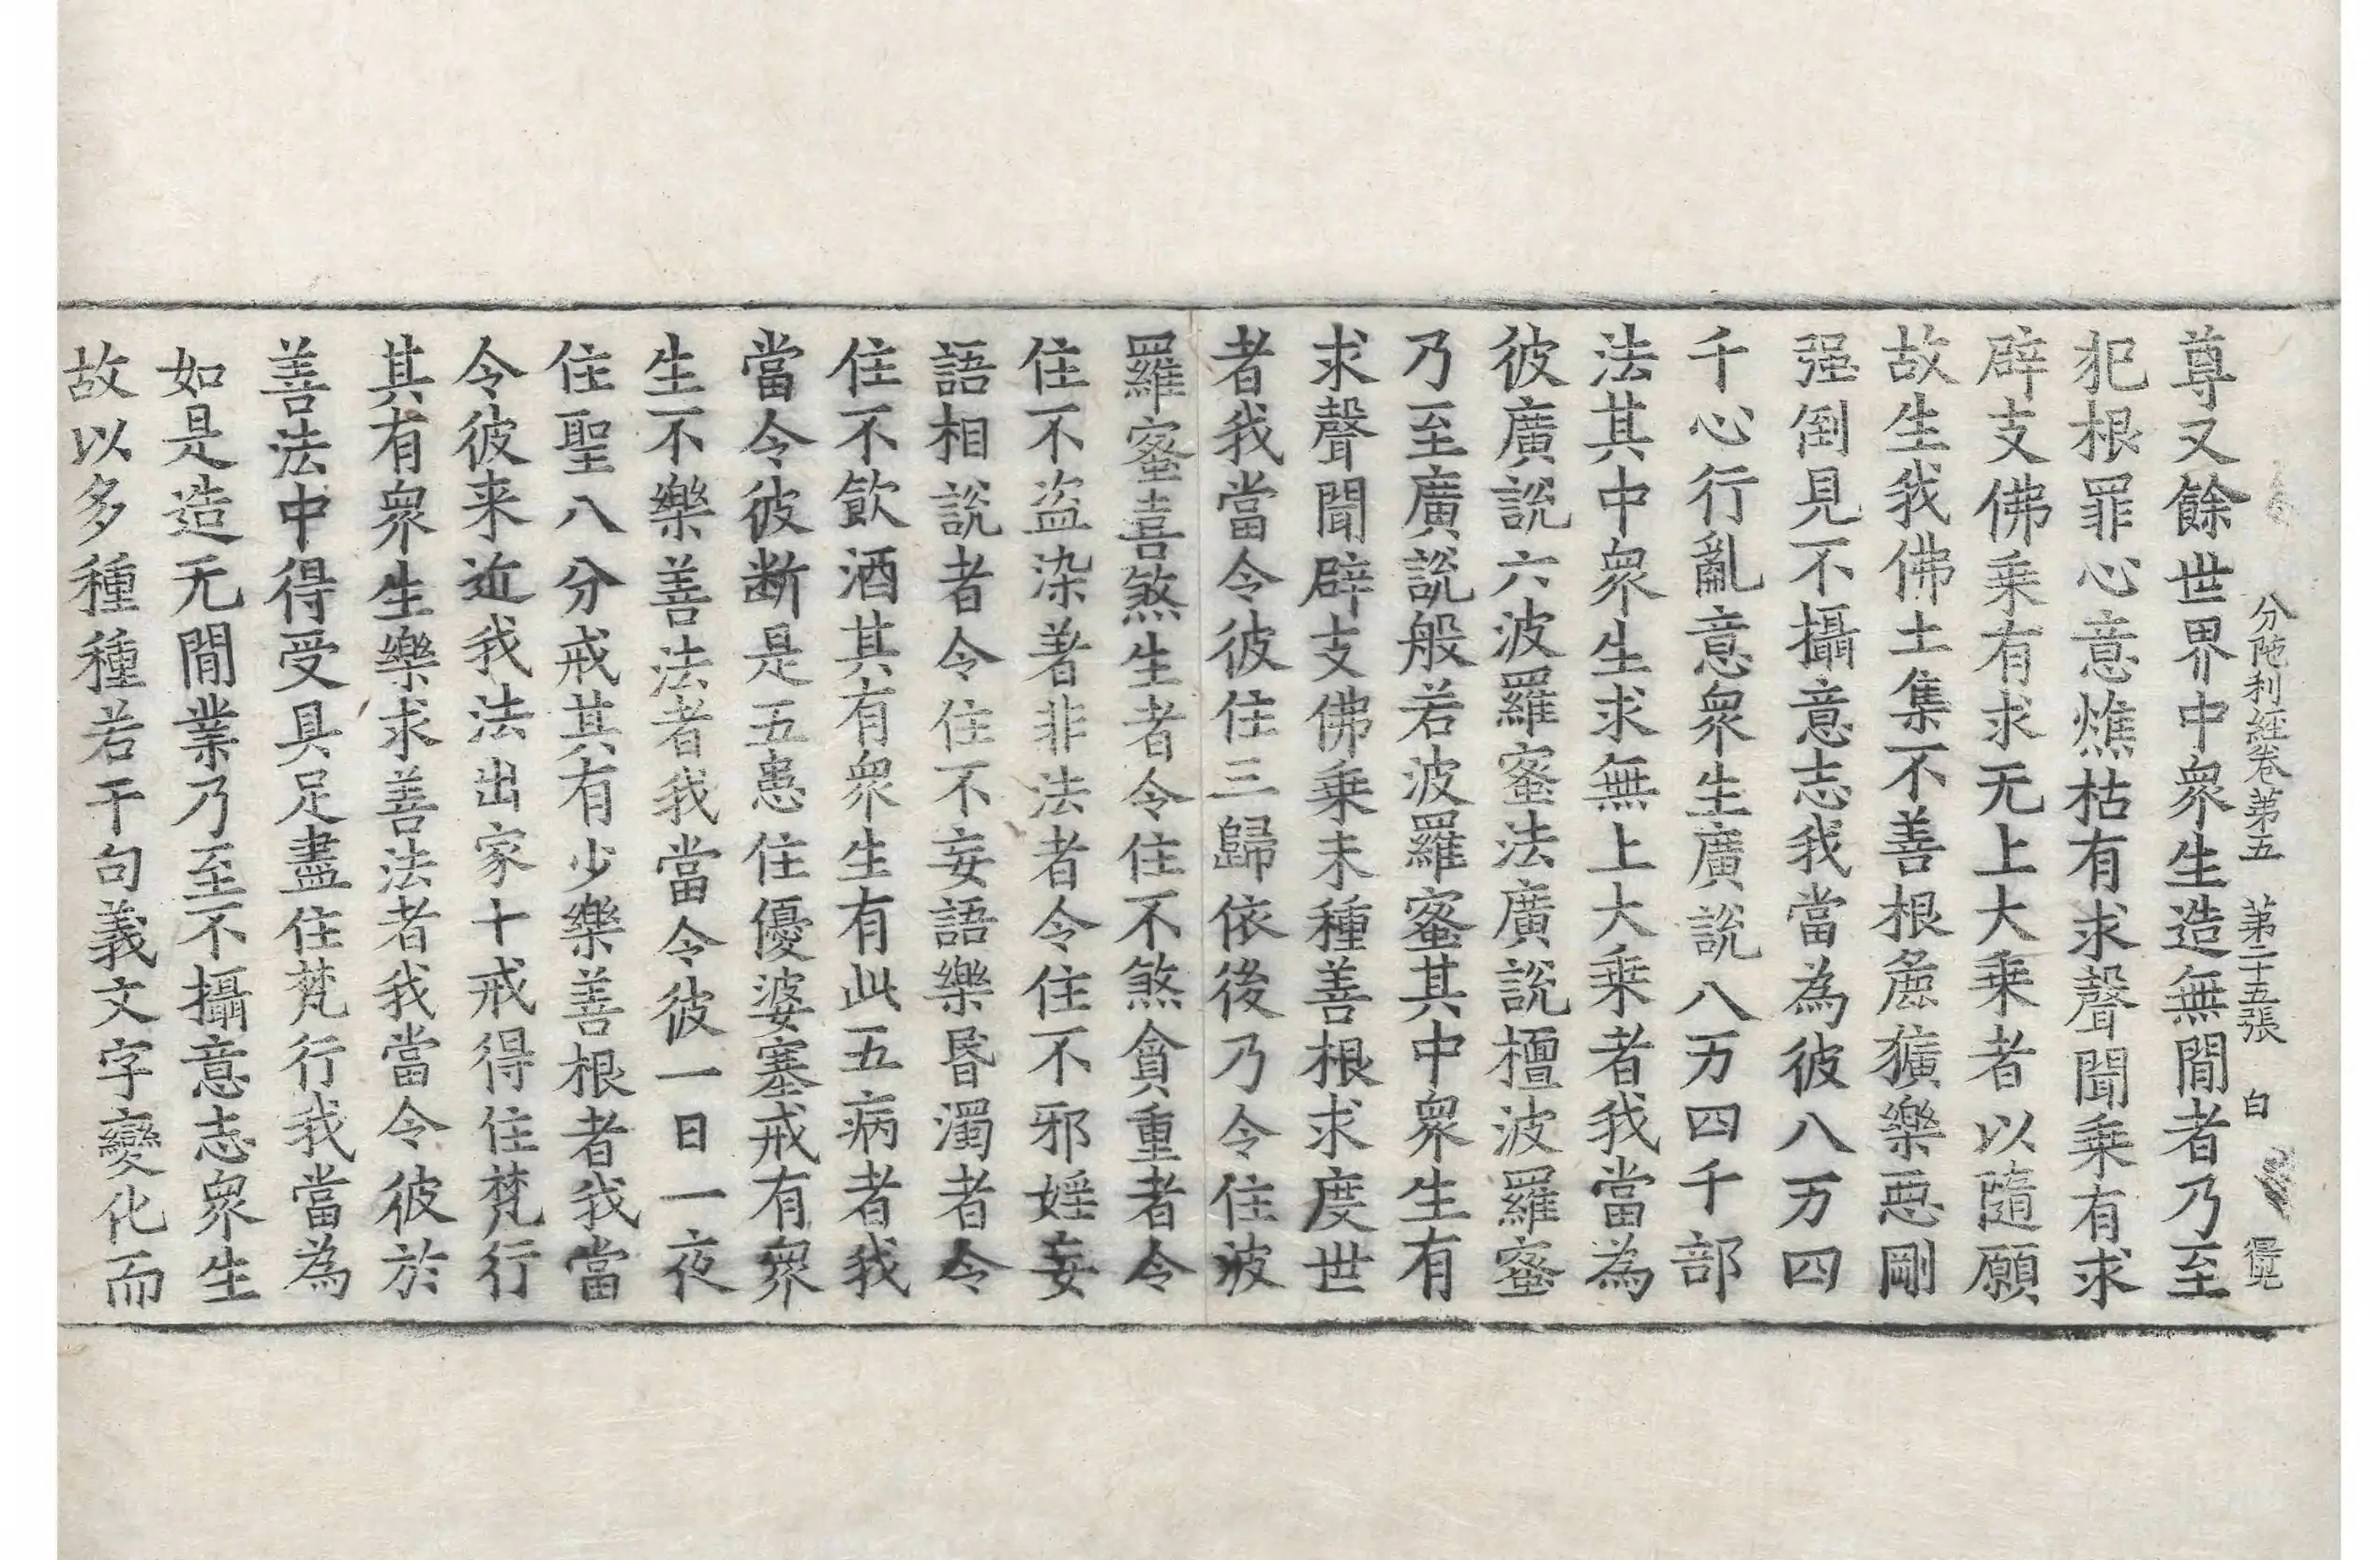 分陁利経卷第五 第二十五張 白
尊又餘世界中衆生造無閒者乃至
犯根罪心意燋枯有求聲聞乗有求
辟支佛乗有求无上大乗者以隨願
故生我佛土集不善根麁獷樂惡剛
强倒見不攝意志我當為彼八万四
千心行亂意衆生廣說八万四千部
法其中衆生求無上大乗者我當為
彼廣說六波羅蜜法廣說檀波羅蜜
乃至廣說般若波羅蜜其中衆生有
求聲聞辟支佛乗未種善根求度世
者我當令彼住三歸依後乃令住波
羅蜜喜煞生者令住不煞貪重者令
住不盗染著非法者令住不邪婬妄
語相說者令住不妄語樂昬濁者令
住不飲酒其有衆生有此五病者我
當令彼断是五患住優婆塞戒有衆
生不樂善法者我當令彼一日一夜
住聖八分戒其有少樂善根者我當
令彼来近我法出家十戒得住梵行
其有衆生樂求善法者我當令彼於
善法中得受具足盡住梵行我當為
如是造无閒業乃至不攝意志衆生
故以多種種若干句義文字變化而